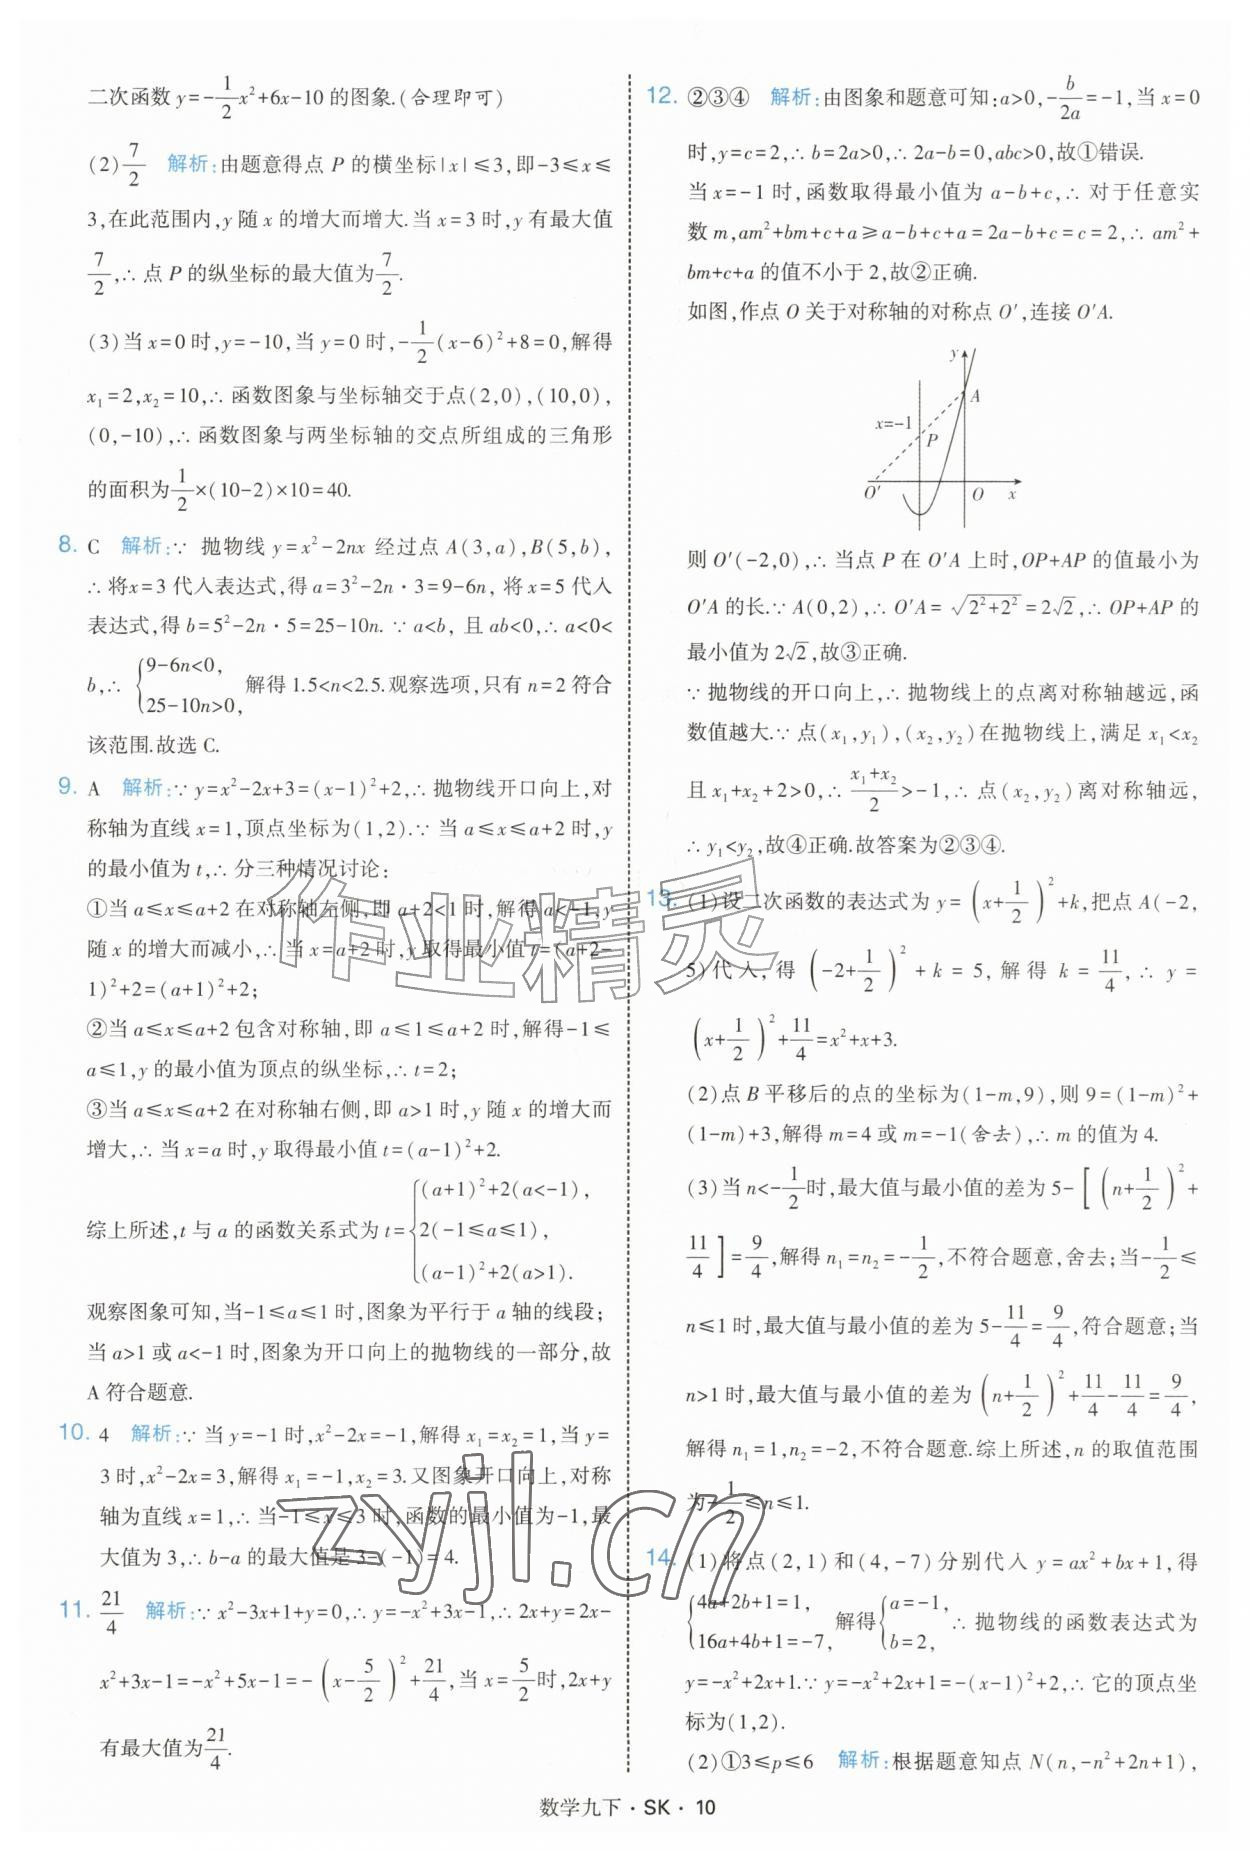 二次函数 y=-1/2x²+6x-10 的图象.(合理即可)
(2)7/2 解析:由题意得点 P 的横坐标|x|≤3,即-3≤x≤
3,在此范围内,y 随 x 的增大而增大.当 x=3 时,y 有最大值
7/2,∴ 点 P 的纵坐标的最大值为7/2.
(3)当 x=0 时,y=-10,当 y=0 时,-1/2(x-6)²+8=0,解得
x₁=2,x₂=10,∴ 函数图象与坐标轴交于点(2,0),(10,0),
(0,-10),∴ 函数图象与两坐标轴的交点所组成的三角形
的面积为1/2×(10-2)×10=40.
8. C 解析:∵ 抛物线 y=x²-2nx 经过点 A(3,a),B(5,b),
∴ 将x=3 代入表达式,得 a=3²-2n·3=9-6n, 将 x=5 代入
表达式,得 b=5²-2n·5=25-10n. ∵ a<b, 且 ab<0,∴ a<0<
b,∴ {9-6n<0, 25-10n>0, 解得 1.5<n<2.5.观察选项,只有 n=2 符合
该范围.故选 C.
9. A 解析:∵ y=x²-2x+3=(x-1)²+2,∴ 抛物线开口向上,对
称轴为直线 x=1,顶点坐标为(1,2).∵ 当 a≤x≤a+2 时,y
的最小值为 t,∴ 分三种情况讨论:
①当 a≤x≤a+2 在对称轴左侧,即 a+2<1 时,解得 a<-1,y
随 x 的增大而减小,∴ 当 x=a+2 时,y 取得最小值 t=(a+2-
1)²+2=(a+1)²+2;
②当 a≤x≤a+2 包含对称轴,即 a≤1≤a+2 时,解得-1≤
a≤1,y 的最小值为顶点的纵坐标,∴ t=2;
③当 a≤x≤a+2 在对称轴右侧,即 a>1 时,y 随 x 的增大而
增大,∴ 当 x=a 时,y 取得最小值 t=(a-1)²+2.
综上所述,t 与 a 的函数关系式为 t={(a+1)²+2(a<-1), 2(-1≤a≤1), (a-1)²+2(a>1).
观察图象可知,当-1≤a≤1 时,图象为平行于 a 轴的线段;
当 a>1 或 a<-1 时,图象为开口向上的抛物线的一部分,故
A 符合题意.
10. 4 解析:∵ 当 y=-1 时,x²-2x=-1,解得 x₁=x₂=1,当 y=
3 时,x²-2x=3,解得 x₁=-1,x₂=3.又图象开口向上,对称
轴为直线 x=1,∴ 当-1≤x≤3 时,函数的最小值为-1,最
大值为 3,∴ b-a 的最大值是 3-(-1)=4.
11. 21/4 解析:∵ x²-3x+1+y=0,∴ y=-x²+3x-1,∴ 2x+y=2x-
x²+3x-1=-x²+5x-1=-(x-5/2)²+21/4,当 x=5/2时,2x+y
有最大值为21/4.
12. ②③④ 解析:由图象和题意可知:a>0,-b/2a=-1,当 x=0
时,y=c=2,∴ b=2a>0,∴ 2a-b=0,abc>0,故①错误.
当 x=-1 时,函数取得最小值为 a-b+c,∴ 对于任意实
数 m,am²+bm+c+a≥a-b+c+a=2a-b+c=c=2,∴ am²+
bm+c+a 的值不小于 2,故②正确.
如图,作点 O 关于对称轴的对称点 O′,连接 O′A.
y
A
x=-1
P
O′
O
x
则 O′(-2,0),∴ 当点 P 在 O′A 上时,OP+AP 的值最小为
O′A 的长.∵ A(0,2),∴ O′A=√(2²+2²)=2√2,∴ OP+AP 的
最小值为 2√2,故③正确.
∵ 抛物线的开口向上,∴ 抛物线上的点离对称轴越远,函
数值越大.∵ 点(x₁,y₁),(x₂,y₂)在抛物线上,满足 x₁<x₂
且 x₁+x₂+2>0,∴ (x₁+x₂)/2>-1,∴ 点(x₂,y₂)离对称轴远,
∴ y₁<y₂,故④正确.故答案为②③④.
13. (1)设二次函数的表达式为 y=(x+1/2)²+k,把点 A(-2,
5)代入,得(-2+1/2)²+k=5,解得 k=11/4,∴ y=
(x+1/2)²+11/4=x²+x+3.
(2)点 B 平移后的点的坐标为(1-m,9),则 9=(1-m)²+
(1-m)+3,解得 m=4 或 m=-1(舍去),∴ m 的值为 4.
(3)当 n<-1/2时,最大值与最小值的差为 5-[(n+1/2)²+
11/4]=9/4,解得 n₁=n₂=-1/2,不符合题意,舍去;当-1/2≤
n≤1 时,最大值与最小值的差为 5-11/4=9/4,符合题意;当
n>1 时,最大值与最小值的差为(n+1/2)²+11/4-11/4=9/4,
解得 n₁=1,n₂=-2,不符合题意.综上所述,n 的取值范围
为-1/2≤n≤1.
14. (1)将点(2,1)和(4,-7)分别代入 y=ax²+bx+1,得
{4a+2b+1=1, 16a+4b+1=-7, 解得{a=-1, b=2, ∴ 抛物线的函数表达式为
y=-x²+2x+1.∵ y=-x²+2x+1=-(x-1)²+2,∴ 它的顶点坐
标为(1,2).
(2)①3≤p≤6 解析:根据题意知点 N(n,-n²+2n+1),
作业精灵
zyjl.cn
数学九下·SK·10